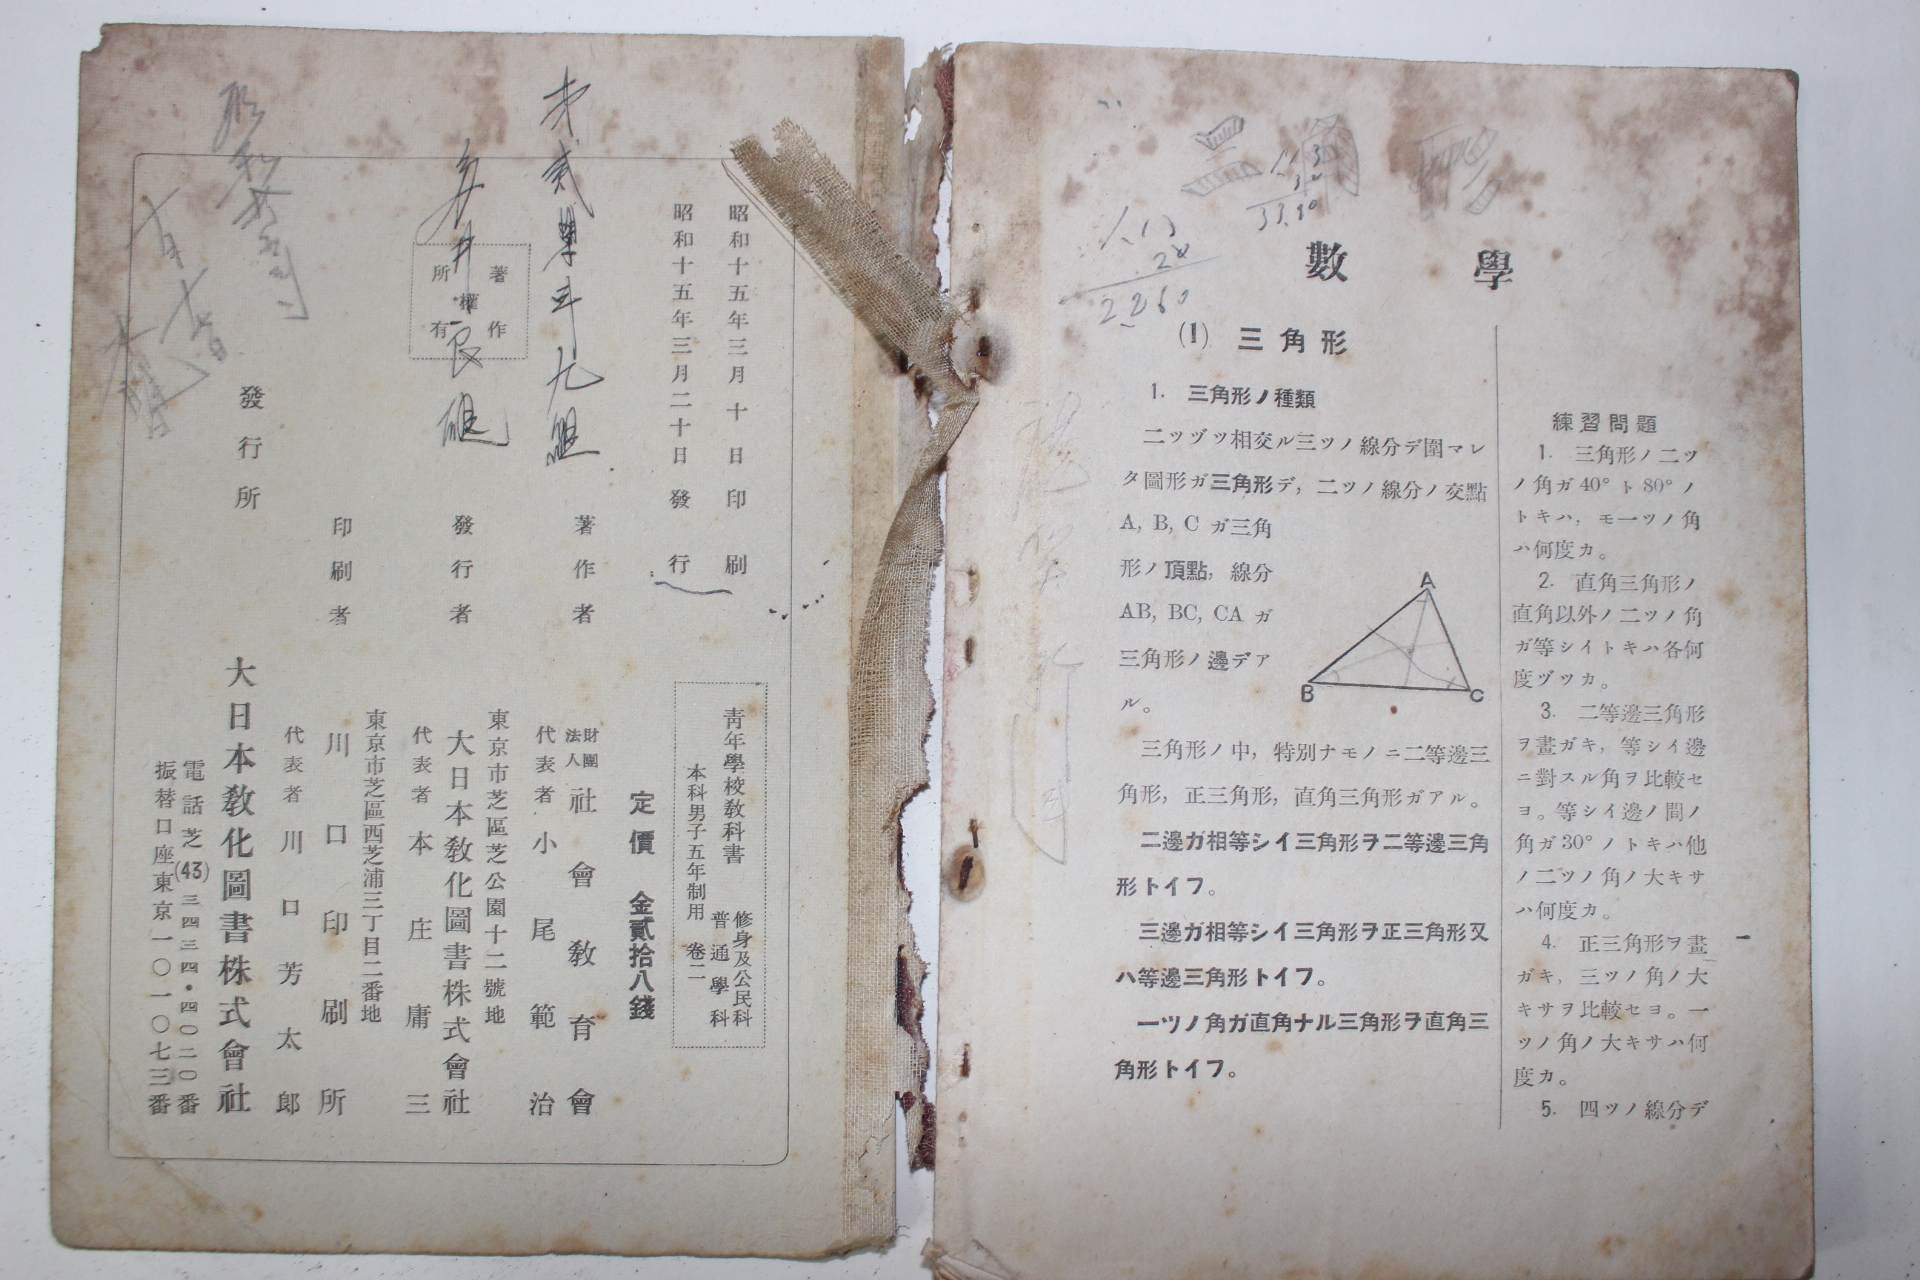 數學
(1) 三角形
1. 三角形ノ種類
二ッヅツ相交ル三ツノ線分デ圍マレ
タ圖形ガ三角形デ, 二ツノ線分ノ交點
A, B, C ガ三角
形ノ頂點, 線分
AB, BC, CA ガ
三角形ノ邊デア
ル。
A
B
C
三角形ノ中, 特別ナモノニ二等邊三
角形, 正三角形, 直角三角形ガアル。
二邊ガ相等シイ三角形ヲ二等邊三角
形トイフ。
三邊ガ相等シイ三角形ヲ正三角形又
ハ等邊三角形トイフ。
一ツノ角ガ直角ナル三角形ヲ直角三
角形トイフ。
練習問題
1. 三角形ノ二ツ
ノ角ガ40°ト80°ノ
トキハ, モ一ツノ角
ハ何度カ。
2. 直角三角形ノ
直角以外ノ二ツノ角
ガ等シイトキハ各何
度ヅツカ。
3. 二等邊三角形
ヲ畫ガキ, 等シイ邊
ニ對スル角ヲ比較セ
ヨ。等シイ邊ノ間ノ
角ガ30°ノトキハ他
ノ二ツノ角ノ大キサ
ハ何度カ。
4. 正三角形ヲ畫
ガキ, 三ツノ角ノ大
キサヲ比較セヨ。一
ツノ角ノ大キサハ何
度カ。
5. 四ツノ線分デ
昭和十五年三月十日印刷
昭和十五年三月二十日發行
著作
權
所有
靑年學校敎科書 修身及公民科
普通學科
本科男子五年制用 卷二
定價 金貳拾八錢
著作者 財團法人 社會敎育會
代表者 小尾範治
東京市芝區芝公園十二號地
發行者 大日本敎化圖書株式會社
代表者 本庄庸三
東京市芝區西芝浦三丁目二番地
印刷者 川口印刷所
代表者 川口芳太郎
發行所 大日本敎化圖書株式會社
電話芝(43)三四三四・四〇二〇番
振替口座東京一〇一〇七三番